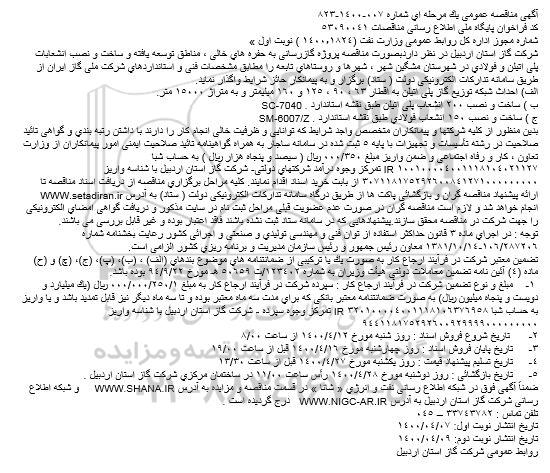 آگهی مناقصه عمومی یك مرحله ای شماره ۰۰۷-۱۴۰۰-۸۲۳
کد فراخوان پایگاه ملی اطلاع رسانی مناقصات ۵۳۰۹۰۰۴۱
شماره مجوز اداره کل روابط عمومی وزارت نفت (۱۴۰۰,۱۸۲۴) نوبت اول »
شرکت گاز استان اردبیل در نظر داردبصورت مناقصه پروژه گازرسانی به حفره های خالی ، مناطق توسعه یافته و ساخت و نصب انشعابات
پلی اتیلن و فولادی در شهرستان مشگین شهر ، شهرها و روستاهای تابعه را مطابق مشخصات فنی و استانداردهای شرکت ملی گاز ایران از
طریق سامانه تدارکات الکترونیکی دولت ( ستاد) برگزار و به پیمانکار حائز شرایط واگذار نماید.
الف) احداث شبکه توزیع گاز پلی اتیلن به اقطار ۶۳ ، ۹۰ ، ۱۲۵ و ۱۶۰ میلیمتر و به متراژ ۱۵۰۰۰ متر.
ب ) ساخت و نصب ۲۰۰ انشعاب پلی اتیلن طبق نقشه استاندارد . SC-7040
ج ) ساخت و نصب ۱۵۰ انشعاب فولادی طبق نقشه استاندارد . SM-6007/Z
بدین منظور از کلیه شرکتها و پیمانکاران متخصص واجد شرایط که توانایی و ظرفیت خالی انجام کار را دارند با داشتن رتبه بندی و گواهی تائید
صلاحیت در رشته تأسیسات و تجهیزات با پایه ۵ ثبت شده در سامانه ساجار به همراه گواهینامه تائید صلاحیت ایمنی امور پیمانکاران از وزارت
تعاون ، کار و رفاه اجتماعی و ضمن واریز مبلغ ۰۰۰/۳۵۰ریال ( سیصد و پنجاه هزار ریال ) به حساب شبا
IR تمرکز وجوه درآمد شرکتهای دولتی- شرکت گاز استان اردبیل با شناسه واریز
از بابت خرید اسناد اقدام نمایند. کلیه مراحل برگزاری مناقصه از دریافت اسناد مناقصه تا
ارائه پیشنهاد مناقصه گران و بازگشائی پاکت ها از طریق درگاه سامانه تدارکات الکترونیکی دولت ( ستاد) به آدرس WWW.setadiran.ir
انجام خواهد شد و لازم است مناقصه گران در صورت عدم عضویت قبلی مراحل ثبت نام در سایت مذکور و دریافت گواهی امضای الکترونیکی
را جهت شرکت در مناقصه محقق سازند.پیشنهادهایی که در سامانه ستاد ثبت نشده باشند فاقد اعتبار بوده و غیر قابل بررسی می باشند.
توجه : در اجرای ماده ۳ قانون حداکثر استفاده از توان فنی و مهندسی تولیدی و صنعتی و اجرائی کشور رعایت بخشنامه شماره
۱۰۶/۲۸۷۲۰۶-۱۳۸۱/۱۰/۱۴ معاون رئیس جمهور و رئیس سازمان مدیریت و برنامه ریزی کشور الزامی است.
تضمین معتبر شرکت در فرآیند ارجاع کار به صورت یك یا ترکیبی از ضمانتنامه های موضوع بندهای (الف) ، (ب)، (پ)، (ج)، (چ) و (ح)
ماده (۴) آئین نامه تضمین معاملات دولتی هیأت وزیران به شماره ۱۲۳۴۰۲/ت ۵۰۶۵۹ ه مورخ ۹۴/۹/۲۲ بوده باشد.
۱- مبلغ و نوع تضمین شرکت در فرآیند ارجاع کار : سپرده شرکت در فرآیند ارجاع کار به مبلغ ۰۰۰/۰۰۰/۲۵۰/۱ریال (یك میلیارد و
دویست و پنجاه میلیون ریال) به صورت ضمانتنامه معتبر بانکی که برای مدت سه ماه معتبر بوده و تا سه ماه دیگر نیز قابل تمدید باشد و یا واریز
به حساب شبا IR تمرکز وجوه سپرده - شرکت گاز استان اردبیل با شناسه واریز
۲- تاریخ شروع فروش اسناد : روز شنبه مورخ ۱۴۰۰/۴/۱۲ از ساعت ۸/۰۰
۳- تاریخ پایان فروش اسناد : روز چهارشنبه مورخ ۱۴۰۰/۴/۱۶ قبل از ساعت ۱۹/۰۰
۴- تاریخ تسلیم پیشنهاد قیمت : روز یکشنبه مورخ ۱۴۰۰/۴/۲۷ قبل از ساعت ۱۳/۳۰
۵- تاریخ بازگشائی : روز دوشنبه مورخ ۱۴۰۰/۴/۲۸ رأس ساعت ۱۱/۰۰ در ساختمان مرکزی شرکت گاز استان اردبیل .
ضمناً آگهی فوق در شبکه اطلاع رسانی نفت و انرژی « شانا » در قسمت مناقصه و مزایده به آدرس WWW.SHANA.IR و شبکه اطلاع
رسانی شرکت گاز استان اردبیل به آدرس WWW.NIGC-AR.IR درج گردیده است .
تلفن تماس : ۳۳۷۴۳۷۸۲ - ۰۴۵
تاریخ انتشار نوبت اول: ۱۴۰۰/۰۴/۰۷
تاریخ انتشار نوبت دوم: ۱۴۰۰/۰۴/۰۹
روابط عمومی شرکت گاز استان اردبیل